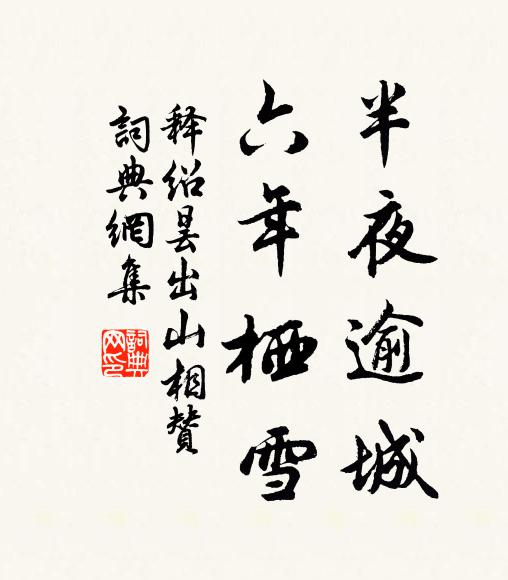 半夜逾城
六年栖雪
释绍昙出山相赞
词典網集
詞典
网印